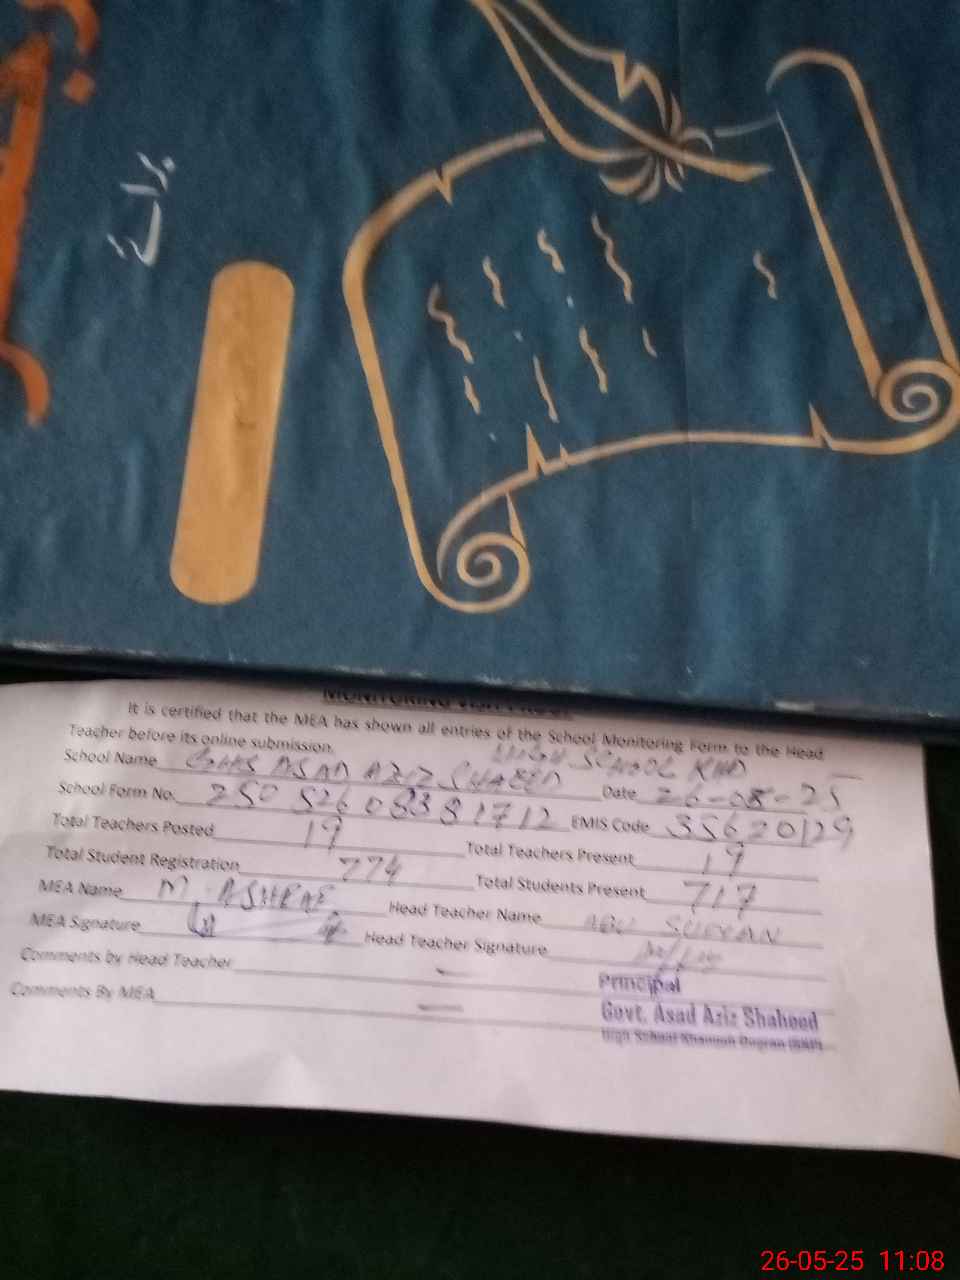 MONITORING VISIT PROOF
It is certified that the MEA has shown all entries of the School Monitoring Form to the Head
Teacher before its online submission.
HIGH SCHOOL KHD
School Name GHS ASAD AZIZ SHAHEED Date 26-08-25
School Form No. 250 526 083 81712 EMIS Code 35620129
Total Teachers Posted 19 Total Teachers Present 19
Total Student Registration 774 Total Students Present 717
MEA Name M. ASHRAF Head Teacher Name ABU SUFYAN
MEA Signature Head Teacher Signature
Comments by Head Teacher
Comments By MEA
Principal
Govt. Asad Aziz Shaheed
High School Khanqah Dogran (SKP)
26-05-25 11:08